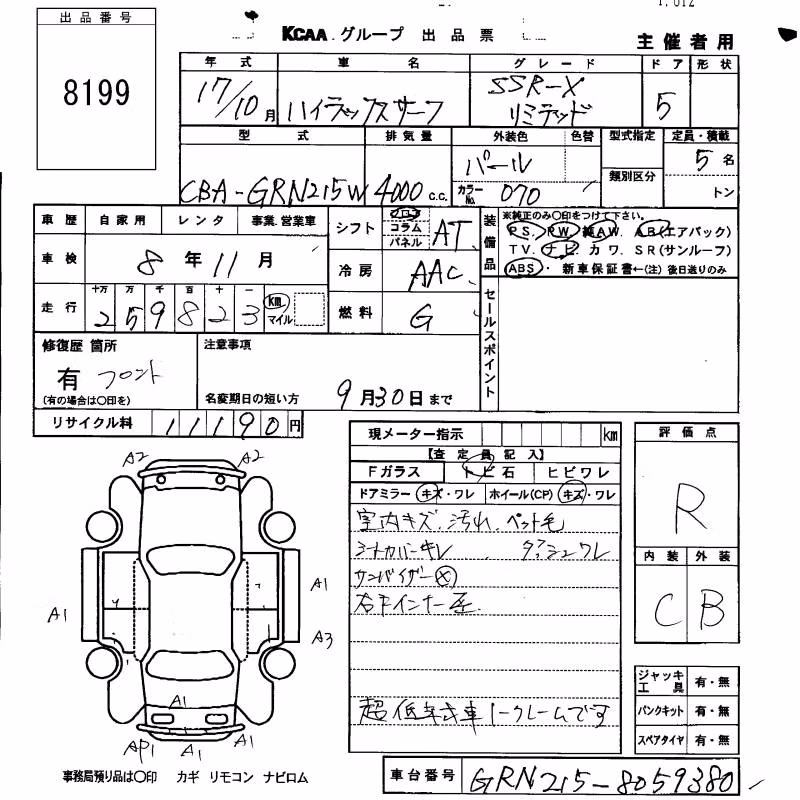 出品番号
8199
KCAA グループ 出品票
主催者用
年式 車名 グレード ドア 形状
17/10月 ハイラックスサーフ SSR-X リミテッド 5
型式 排気量 外装色 色替 型式指定 定員・積載
CBA-GRN215W 4000 c.c. パール 類別区分 5名
カラーNo. 070 トン
車歴 自家用 レンタ 事業.営業車
車検 8年11月
走行 十万 万 千 百 十 一
259823 km マイル
シフト フロア コラム パネル AT
冷房 AAC
燃料 G
装備品
※純正のみ〇印をつけて下さい。
PS. PW. 純AW. AB(エアバック)
TV. ナビ. カワ. SR(サンルーフ)
ABS・ 新車保証書←(注) 後日送りのみ
セールスポイント
修復歴 箇所
有 フロント
(有の場合は〇印を)
注意事項
名変期日の短い方 9月30日まで
リサイクル料 11190円
現メーター指示 km
【査定員記入】
Fガラス トビ石 ヒビワレ
ドアミラー キズ・ワレ ホイール(CP) キズ・ワレ
室内キズ.汚れ.ペット毛
シートカバーキレ ダッシュワレ
サンバイザー×
右Fインナー歪
超低年式車ノークレームです
評価点
R
内装 外装
C B
ジャッキ工具 有・無
パンクキット 有・無
スペアタイヤ 有・無
A2 A2
A1
A1
A3
A1
AP1 A1 A1
事務局預り品は〇印 カギ リモコン ナビロム
車台番号 GRN215-8059380